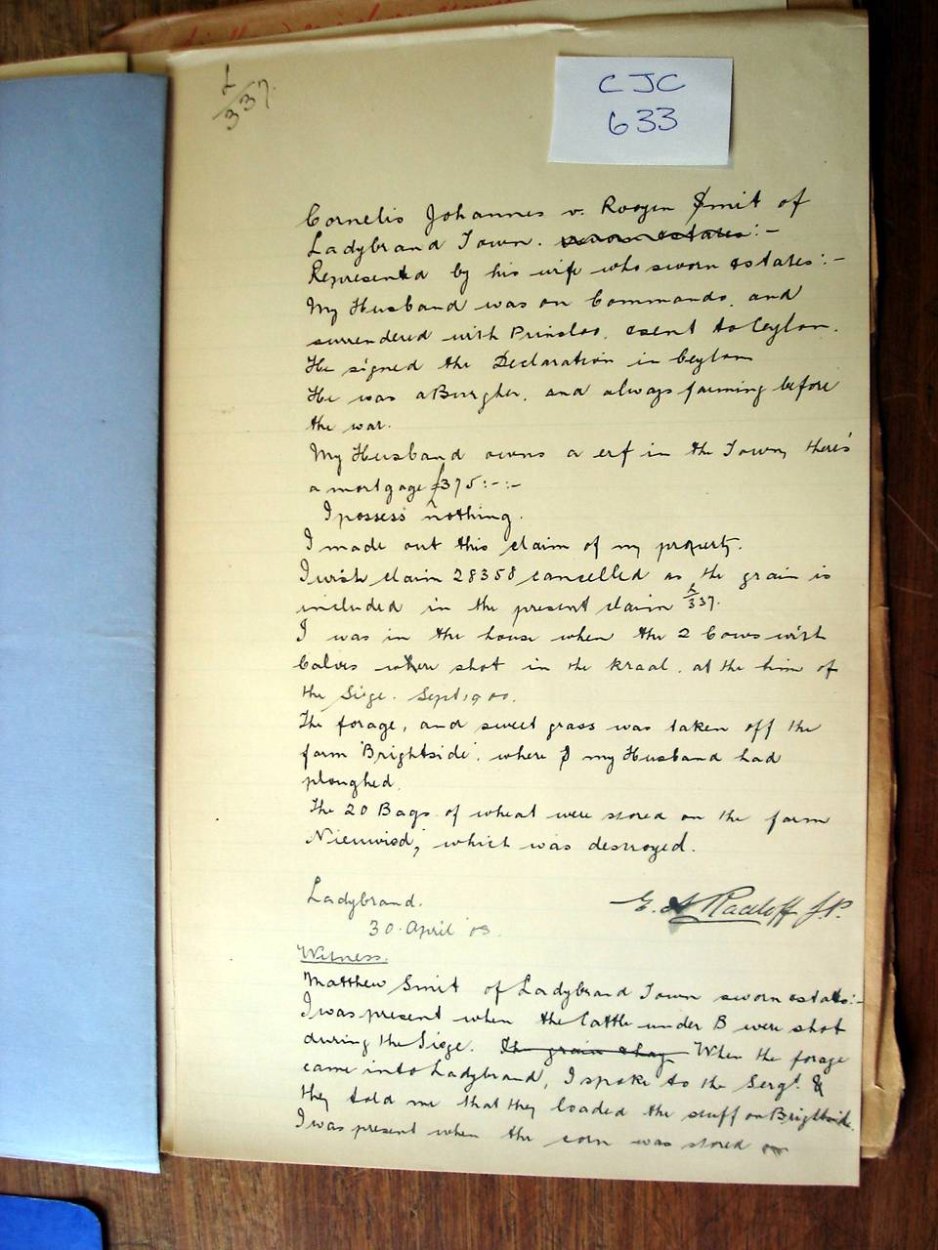 L/337.
CJC
633
Cornelis Johannes v. Rooyen Smit of
Ladybrand Town. sworn estates:-
Represented by his wife who sworn states:-
My Husband was on Commando, and
surrendered with Prinsloo, & sent to Ceylon.
He signed the Declaration in Ceylon
He was a Burgher, and always farming before
the war.
My Husband owns a erf in the Town, there's
a mortgage £375:-:-
I possess nothing.
I made out this claim of my property.
I wish claim 28358 cancelled as the grain is
included in the present claim L/337.
I was in the house when the 2 Cows with
Calves where shot in the kraal, at the time of
the Siege. Sept 1900.
The forage, and sweet grass was taken off the
farm 'Brightside', where my Husband had
ploughed.
The 20 Bags of wheat were stored on the farm
which was destroyed.
Ladybrand.
30 April 03.
E. A. Radloff J.P.
Witness.
Matthew Smit of Ladybrand Town sworn states:-
I was present when the Cattle under B were shot
during the Siege. The grain & hay When the forage
came into Ladybrand, I spoke to the Sergt. &
they told me that they loaded the stuff on Brightside.
I was present when the corn was stored on